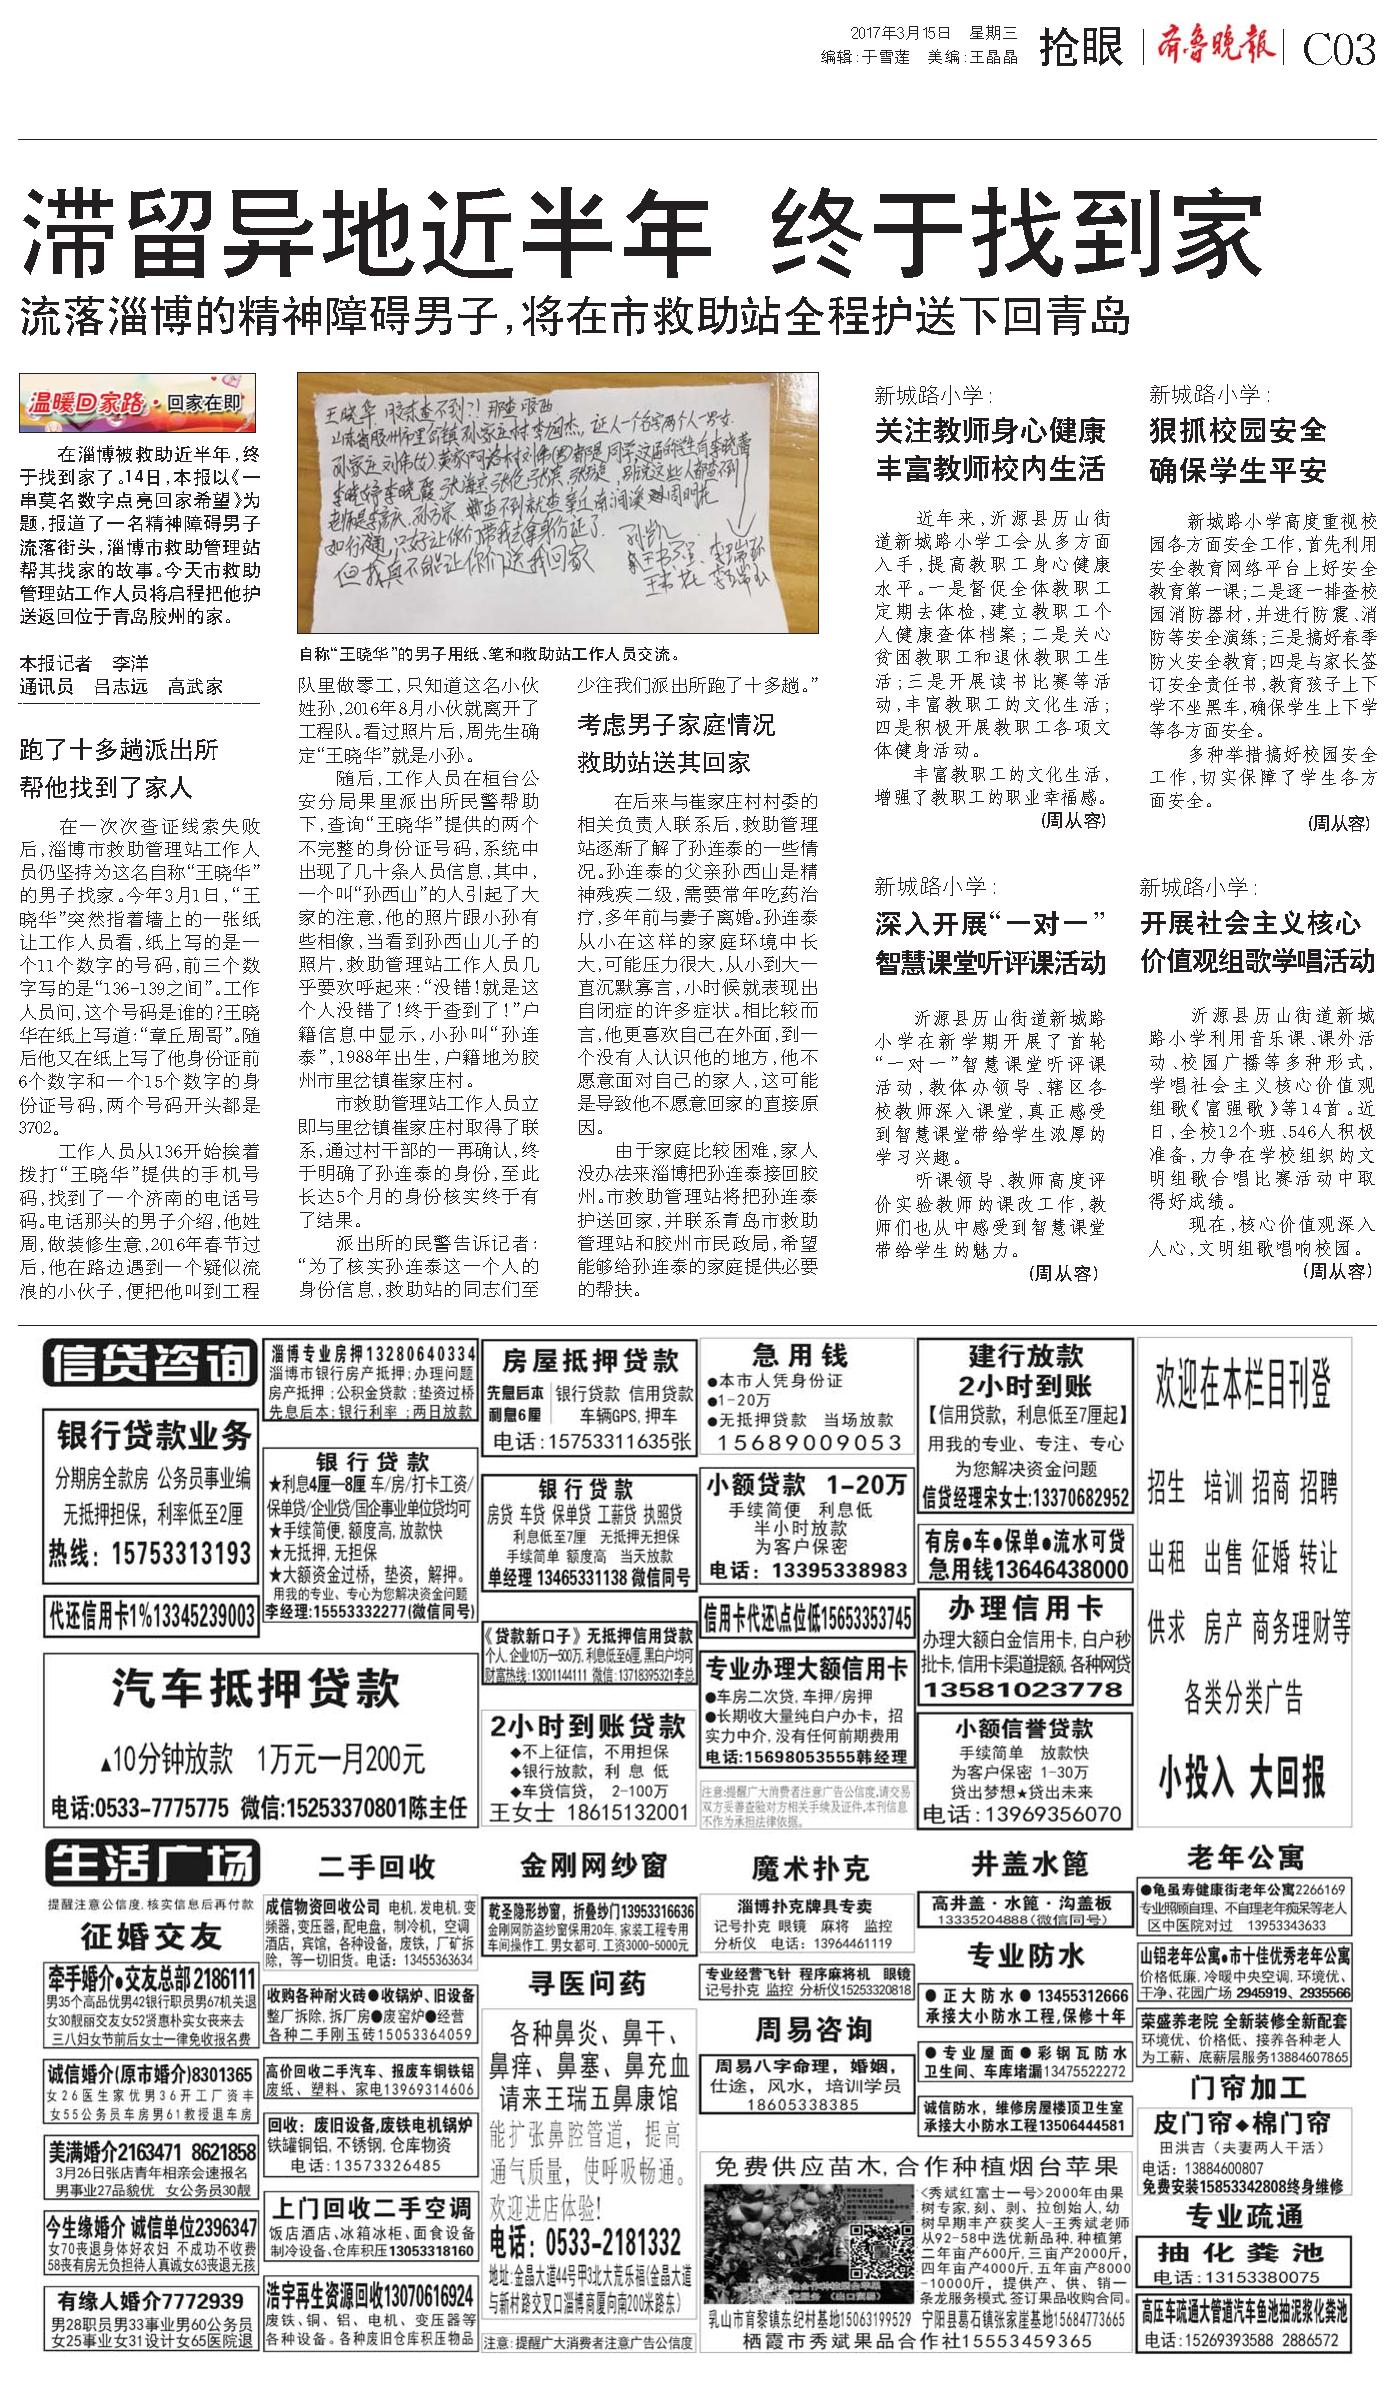 2017年3月15日 星期三
编辑:于雪莲 美编:王晶晶
抢眼
齐鲁晚报
C03
滞留异地近半年 终于找到家
流落淄博的精神障碍男子,将在市救助站全程护送下回青岛
温暖回家路·回家在即
在淄博被救助近半年,终
于找到家了。14日,本报以《一
串莫名数字点亮回家希望》为
题,报道了一名精神障碍男子
流落街头,淄博市救助管理站
帮其找家的故事。今天市救助
管理站工作人员将启程把他护
送返回位于青岛胶州的家。
本报记者 李洋
通讯员 吕志远 高武家
跑了十多趟派出所
帮他找到了家人
在一次次查证线索失败
后,淄博市救助管理站工作人
员仍坚持为这名自称“王晓华”
的男子找家。今年3月1日,“王
晓华”突然指着墙上的一张纸
让工作人员看,纸上写的是一
个11个数字的号码,前三个数
字写的是“136-139之间”。工作
人员问,这个号码是谁的?王晓
华在纸上写道:“章丘周哥”。随
后他又在纸上写了他身份证前
6个数字和一个15个数字的身
份证号码,两个号码开头都是
3702。
工作人员从136开始挨着
拨打“王晓华”提供的手机号
码,找到了一个济南的电话号
码。电话那头的男子介绍,他姓
周,做装修生意,2016年春节过
后,他在路边遇到一个疑似流
浪的小伙子,便把他叫到工程
自称“王晓华”的男子用纸、笔和救助站工作人员交流。
队里做零工,只知道这名小伙
姓孙,2016年8月小伙就离开了
工程队。看过照片后,周先生确
定“王晓华”就是小孙。
随后,工作人员在桓台公
安分局果里派出所民警帮助
下,查询“王晓华”提供的两个
不完整的身份证号码,系统中
出现了几十条人员信息,其中,
一个叫“孙西山”的人引起了大
家的注意,他的照片跟小孙有
些相像,当看到孙西山儿子的
照片,救助管理站工作人员几
乎要欢呼起来:“没错!就是这
个人没错了!终于查到了!”户
籍信息中显示,小孙叫“孙连
泰”,1988年出生,户籍地为胶
州市里岔镇崔家庄村。
市救助管理站工作人员立
即与里岔镇崔家庄村取得了联
系,通过村干部的一再确认,终
于明确了孙连泰的身份,至此
长达5个月的身份核实终于有
了结果。
派出所的民警告诉记者:
“为了核实孙连泰这一个人的
身份信息,救助站的同志们至
少往我们派出所跑了十多趟。”
考虑男子家庭情况
救助站送其回家
在后来与崔家庄村村委的
相关负责人联系后,救助管理
站逐渐了解了孙连泰的一些情
况。孙连泰的父亲孙西山是精
神残疾二级,需要常年吃药治
疗,多年前与妻子离婚。孙连泰
从小在这样的家庭环境中长
大,可能压力很大,从小到大一
直沉默寡言,小时候就表现出
自闭症的许多症状。相比较而
言,他更喜欢自己在外面,到一
个没有人认识他的地方,他不
愿意面对自己的家人,这可能
是导致他不愿意回家的直接原
因。
由于家庭比较困难,家人
没办法来淄博把孙连泰接回胶
州。市救助管理站将把孙连泰
护送回家,并联系青岛市救助
管理站和胶州市民政局,希望
能够给孙连泰的家庭提供必要
的帮扶。
新城路小学:
关注教师身心健康
丰富教师校内生活
近年来,沂源县历山街
道新城路小学工会从多方面
入手,提高教职工身心健康
水平。一是督促全体教职工
定期去体检,建立教职工个
人健康查体档案;二是关心
贫困教职工和退休教职工生
活;三是开展读书比赛等活
动,丰富教职工的文化生活;
四是积极开展教职工各项文
体健身活动。
丰富教职工的文化生活,
增强了教职工的职业幸福感。
(周从容)
新城路小学:
狠抓校园安全
确保学生平安
新城路小学高度重视校
园各方面安全工作,首先利用
安全教育网络平台上好安全
教育第一课;二是逐一排查校
园消防器材,并进行防震、消
防等安全演练;三是搞好春季
防火安全教育;四是与家长签
订安全责任书,教育孩子上下
学不坐黑车,确保学生上下学
等各方面安全。
多种举措搞好校园安全
工作,切实保障了学生各方
面安全。
(周从容)
新城路小学:
深入开展“一对一”
智慧课堂听评课活动
沂源县历山街道新城路
小学在新学期开展了首轮
“一对一”智慧课堂听评课
活动,教体办领导、辖区各
校教师深入课堂,真正感受
到智慧课堂带给学生浓厚的
学习兴趣。
听课领导、教师高度评
价实验教师的课改工作,教
师们也从中感受到智慧课堂
带给学生的魅力。
(周从容)
新城路小学:
开展社会主义核心
价值观组歌学唱活动
沂源县历山街道新城
路小学利用音乐课、课外活
动、校园广播等多种形式,
学唱社会主义核心价值观
组歌《富强歌》等14首。近
日,全校12个班、546人积极
准备,力争在学校组织的文
明组歌合唱比赛活动中取
得好成绩。
现在,核心价值观深入
人心,文明组歌唱响校园。
(周从容)
信贷咨询
银行贷款业务
分期房全款房 公务员事业编
无抵押担保,利率低至2厘
热线:15753313193
代还信用卡1%13345239003
汽车抵押贷款
▲10分钟放款 1万元一月200元
电话:0533-7775775 微信:15253370801陈主任
淄博专业房押13280640334
淄博市银行房产抵押;办理问题
房产抵押;公积金贷款;垫资过桥
先息后本;银行利率;两日放款
银行贷款
★利息4厘—8厘 车/房/打卡工资/
保单贷/企业贷/国企事业单位贷均可
★手续简便,额度高,放款快
★无抵押,无担保
★大额资金过桥,垫资,解押。
用我的专业、专心为您解决资金问题
李经理:15553332277(微信同号)
房屋抵押贷款
先息后本 银行贷款 信用贷款
利息6厘 车辆GPS,押车
电话:15753311635张
银行贷款
房贷 车贷 保单贷 工薪贷 执照贷
利息低至7厘 无抵押无担保
手续简单 额度高 当天放款
单经理 13465331138 微信同号
《贷款新口子》无抵押信用贷款
个人,企业10万—500万,利息低至6厘,黑白户均可
财富热线:13001144111 微信:13718395321李总
2小时到账贷款
◆不上征信,不用担保
◆银行放款,利息低
◆车贷信贷,2-100万
王女士 18615132001
急用钱
●本市人凭身份证
●1-20万
●无抵押贷款 当场放款
15689009053
小额贷款 1-20万
手续简便 利息低
半小时放款
为客户保密
电话:13395338983
信用卡代还\点位低15653353745
专业办理大额信用卡
●车房二次贷,车押/房押
●长期收大量纯白户办卡,招
实力中介,没有任何前期费用
电话:15698053555韩经理
注意:提醒广大消费者注意广告公信度,请交易
双方妥善查验对方相关手续及证件,本刊信息
不作为承担法律依据。
建行放款
2小时到账
【信用贷款,利息低至7厘起】
用我的专业、专注、专心
为您解决资金问题
信贷经理宋女士:13370682952
有房●车●保单●流水可贷
急用钱13646438000
办理信用卡
办理大额白金信用卡,白户秒
批卡,信用卡渠道提额,各种网贷
13581023778
小额信誉贷款
手续简单 放款快
为客户保密 1-30万
贷出梦想★贷出未来
电话:13969356070
欢迎在本栏目刊登
招生 培训 招商 招聘
出租 出售 征婚 转让
供求 房产 商务理财等
各类分类广告
小投入 大回报
生活广场
提醒注意公信度,核实信息后再付款
征婚交友
牵手婚介●交友总部2186111
男35个高品优男42银行职员男67机关退
女30靓丽交友女52贤惠朴实女丧来去
三八妇女节前后女士一律免收报名费
诚信婚介(原市婚介)8301365
女26医生家优男36开工厂资丰
女55公务员车房男61教授退车房
美满婚介2163471 8621858
3月26日张店青年相亲会速报名
男事业27品貌优 女公务员30靓
今生缘婚介 诚信单位2396347
女70丧退身体好农妇 不成功不收费
58丧有房无负担待人真诚女63丧退无孩
有缘人婚介7772939
男28职员男33事业男60公务员
女25事业女31设计女65医院退
二手回收
成信物资回收公司 电机,发电机,变
频器,变压器,配电盘,制冷机,空调
酒店,宾馆,各种设备,废铁,厂矿拆
除,等一切旧货。电话:13455363634
收购各种耐火砖●收锅炉、旧设备
整厂拆除,拆厂房●废窑炉●经营
各种二手刚玉砖15053364059
高价回收二手汽车、报废车铜铁铝
废纸、塑料、家电13969314606
回收:废旧设备,废铁电机锅炉
铁罐铜铝,不锈钢,仓库物资
电话:13573326485
上门回收二手空调
饭店酒店、冰箱冰柜、面食设备
制冷设备、仓库积压13053318160
浩宇再生资源回收13070616924
废铁、铜、铝、电机、变压器等
各种设备。各种废旧仓库积压物品
金刚网纱窗
乾圣隐形纱窗,折叠纱门13953316636
金刚网防盗纱窗保用20年,家装工程专用
车间操作工,男女都可,工资3000-5000元
寻医问药
各种鼻炎、鼻干、
鼻痒、鼻塞、鼻充血
请来王瑞五鼻康馆
能扩张鼻腔管道,提高
通气质量,使呼吸畅通。
欢迎进店体验!
电话:0533-2181332
地址:金晶大道44号甲3北大荒乐福(金晶大道
与新村路交叉口淄博商厦向南200米路东)
注意:提醒广大消费者注意广告公信度
魔术扑克
淄博扑克牌具专卖
记号扑克 眼镜 麻将 监控
分析仪 电话:13964461119
专业经营飞针 程序麻将机 眼镜
记号扑克 监控 分析仪15253320818
周易咨询
周易八字命理,婚姻,
仕途,风水,培训学员
18605338385
井盖水篦
高井盖·水篦·沟盖板
13335204888(微信同号)
专业防水
●正大防水●13455312666
承接大小防水工程,保修十年
●专业屋面●彩钢瓦防水
卫生间、车库堵漏13475522272
诚信防水,维修房屋楼顶卫生室
承接大小防水工程13506444581
免费供应苗木,合作种植烟台苹果
<秀斌红富士一号>2000年由果
树专家,刻、剥、拉创始人,幼
树早期丰产获奖人-王秀斌老师
从92-58中选优新品种,种植第
二年亩产600斤,三亩产2000斤,
四年亩产4000斤,五年亩产8000
-10000斤,提供产、供、销一
条龙服务模式,签订果品收购合同。
乳山市育黎镇东纪村基地15063199529 宁阳县葛石镇张家崖基地15684773665
栖霞市秀斌果品合作社15553459365
老年公寓
●龟虽寿健康街老年公寓2266169
专业照顾自理、不自理老年痴呆等老人
区中医院对过 13953343633
山铝老年公寓●市十佳优秀老年公寓
价格低廉,冷暖中央空调,环境优、
干净、花园广场 2945919、2935566
荣盛养老院 全新装修全新配套
环境优、价格低、接养各种老人
为工薪、底薪层服务13884607865
门帘加工
皮门帘◆棉门帘
田洪吉(夫妻两人干活)
电话:13884600807
免费安装15853342808终身维修
专业疏通
抽化粪池
电话:13153380075
高压车疏通大管道汽车鱼池抽泥浆化粪池
电话:15269393588 2886572